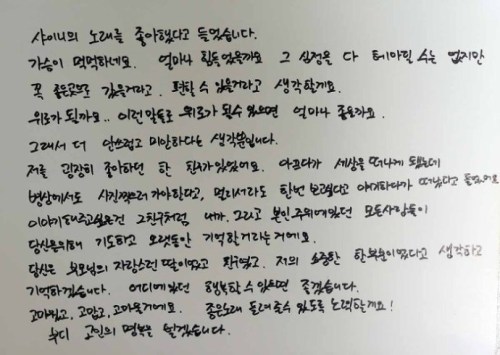 샤이니의 노래를 좋아했다고 들었습니다.
가슴이 먹먹하네요. 얼마나 힘들었을까요 그 심정을 다 헤아릴 수는 없지만
꼭 좋은곳으로 갔을거라고. 편할 수 있을거라고 생각할게요.
위로가 될까요.. 이런 말들로 위로가 될수 있으면 얼마나 좋을까요.
그래서 더 안쓰럽고 미안하다는 생각뿐입니다.
저를 굉장히 좋아하던 한 친구가 있었어요. 아프다가 세상을 떠나게 됐는데
병상에서도 사진찍으러 가야한다고, 멀리서라도 한번 보고싶다고 이야기하다가 떠났다고 들었어요
이야기해주고싶은건 그친구처럼 나까. 그리고 본인 주위에있던 모든사람들이
당신을위해 기도하고 오랫동안 기억할거라는거에요.
당신은 부모님의 자랑스런 딸이었고 친구였고. 저의 소중한 한부분이였다고 생각하고
기억하겠습니다. 어디에 있던 행복할 수 있으면 좋겠습니다.
고마웠고, 고맙고, 고마울거에요. 좋은노래 들려줄수 있도록 노력할게요!
부디 고인의 명복을 빌겠습니다.